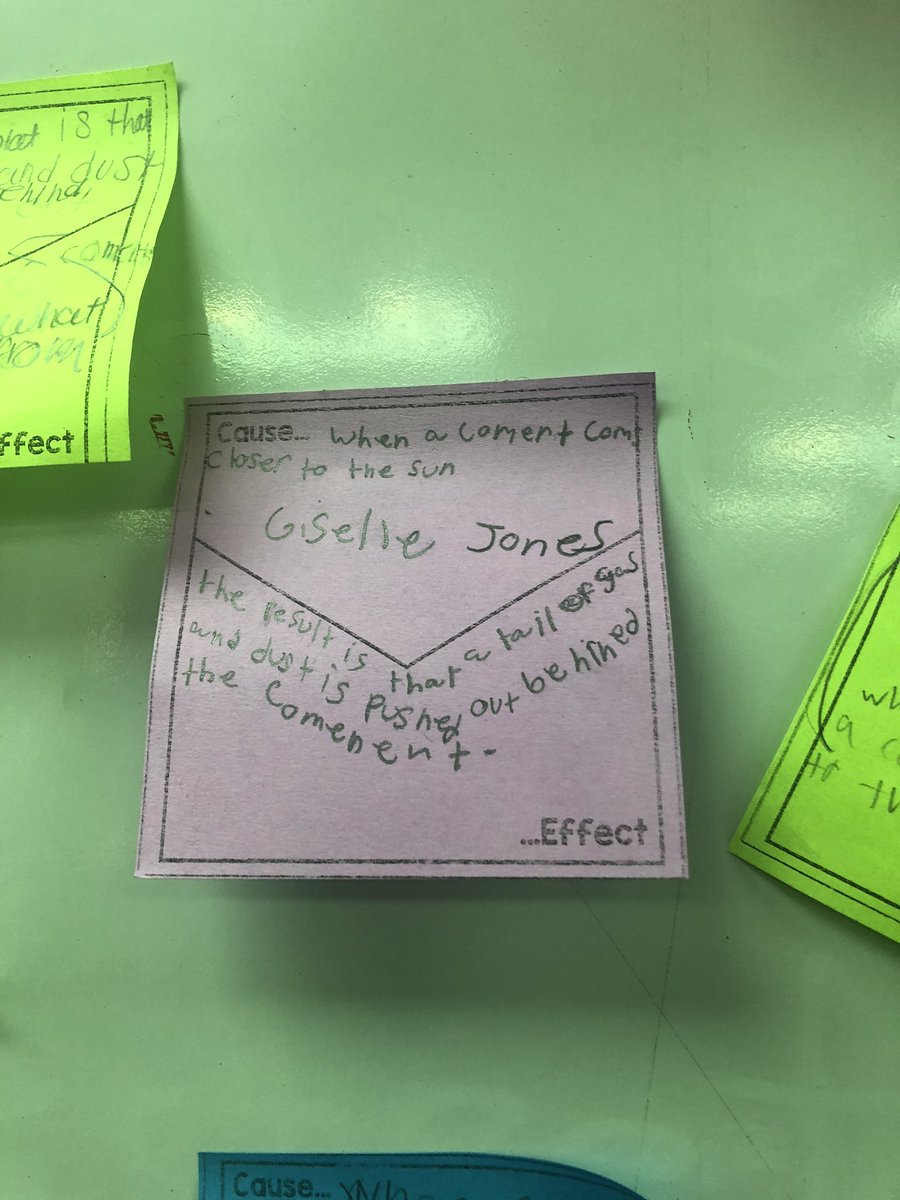 is that
and dust
ehind,
what
ffect
Cause... when a coment com
closer to the sun
Giselle Jones
the result is that a tail of gas
and dust is pushed out behined
the comenent.
...Effect
wh
a c
to
th
Cause...